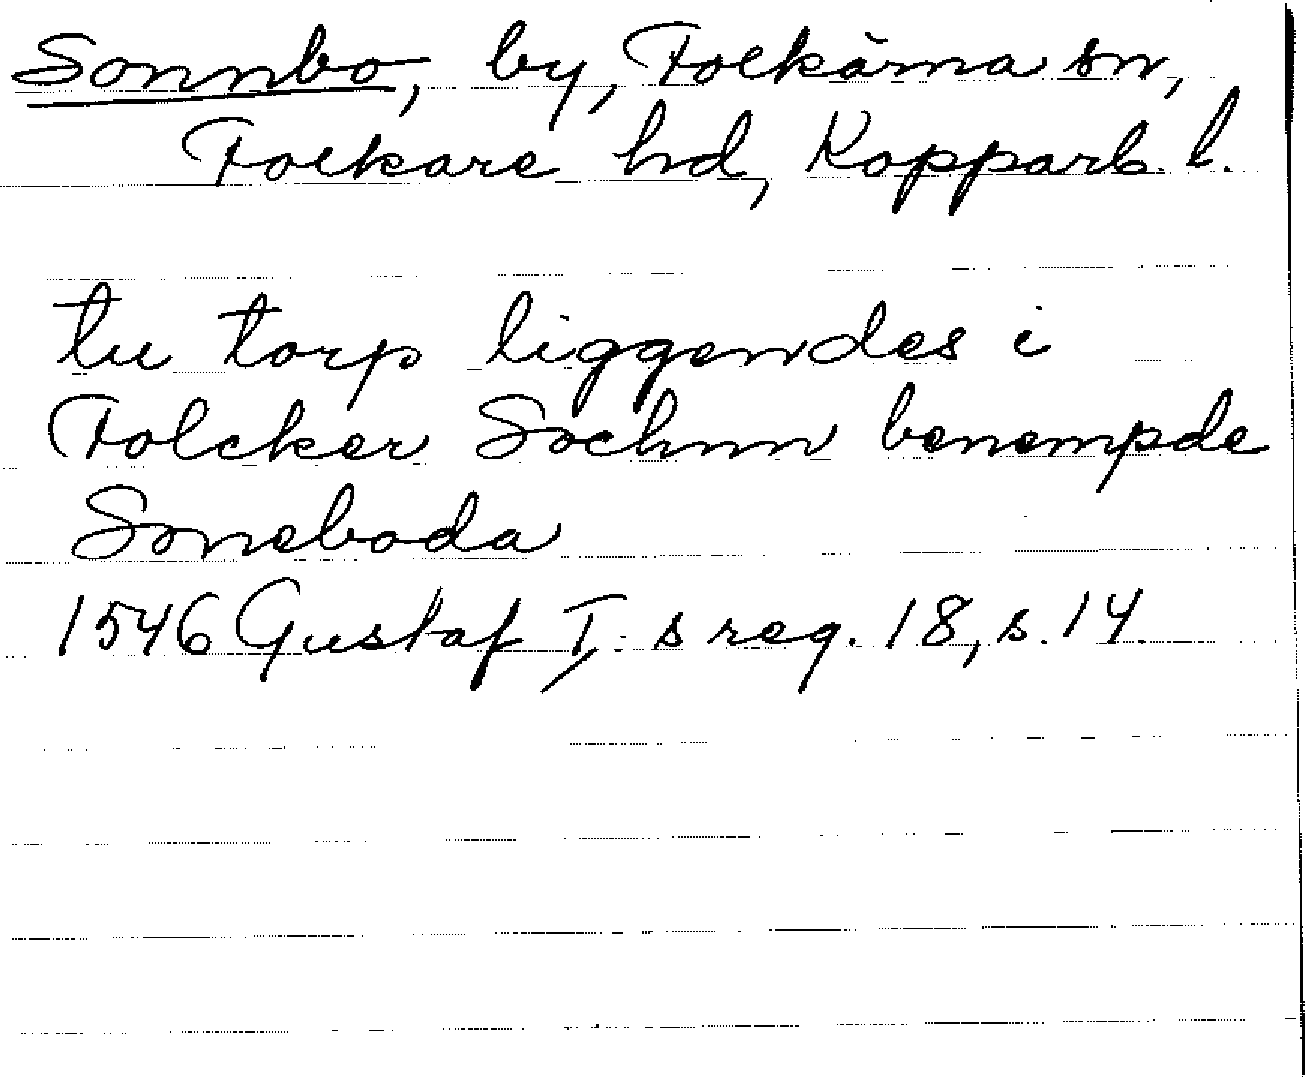 Sonnbo, by, Folkärna sn,
Folkare hd, Kopparb. l.
tu torp liggendes i
Folcker Sochnn benempde
Soneboda
1546 Gustaf I:s reg. 18, s. 14